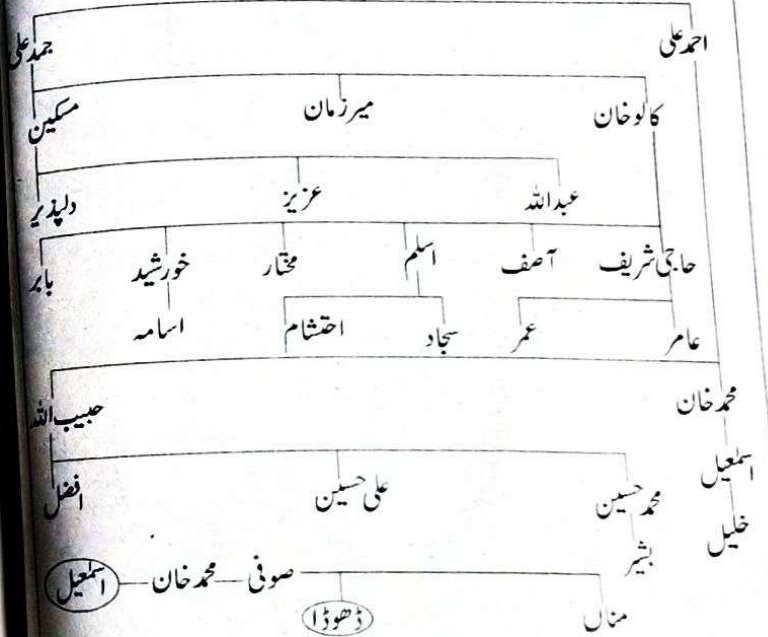 احمد علی جمد علی
کالوخان میرزمان مسکین
عبداللہ عزیز دلپذیر
حاجی شریف آصف اسلم مختار خورشید بابر
عامر عمر سجاد احتشام اسامہ
محمد خان حبیب اللہ
اسمٰعیل
محمد حسین علی حسین افضل
خلیل
بشیر
صوفی محمد خان اسمٰعیل
مناں ڈھوڈا